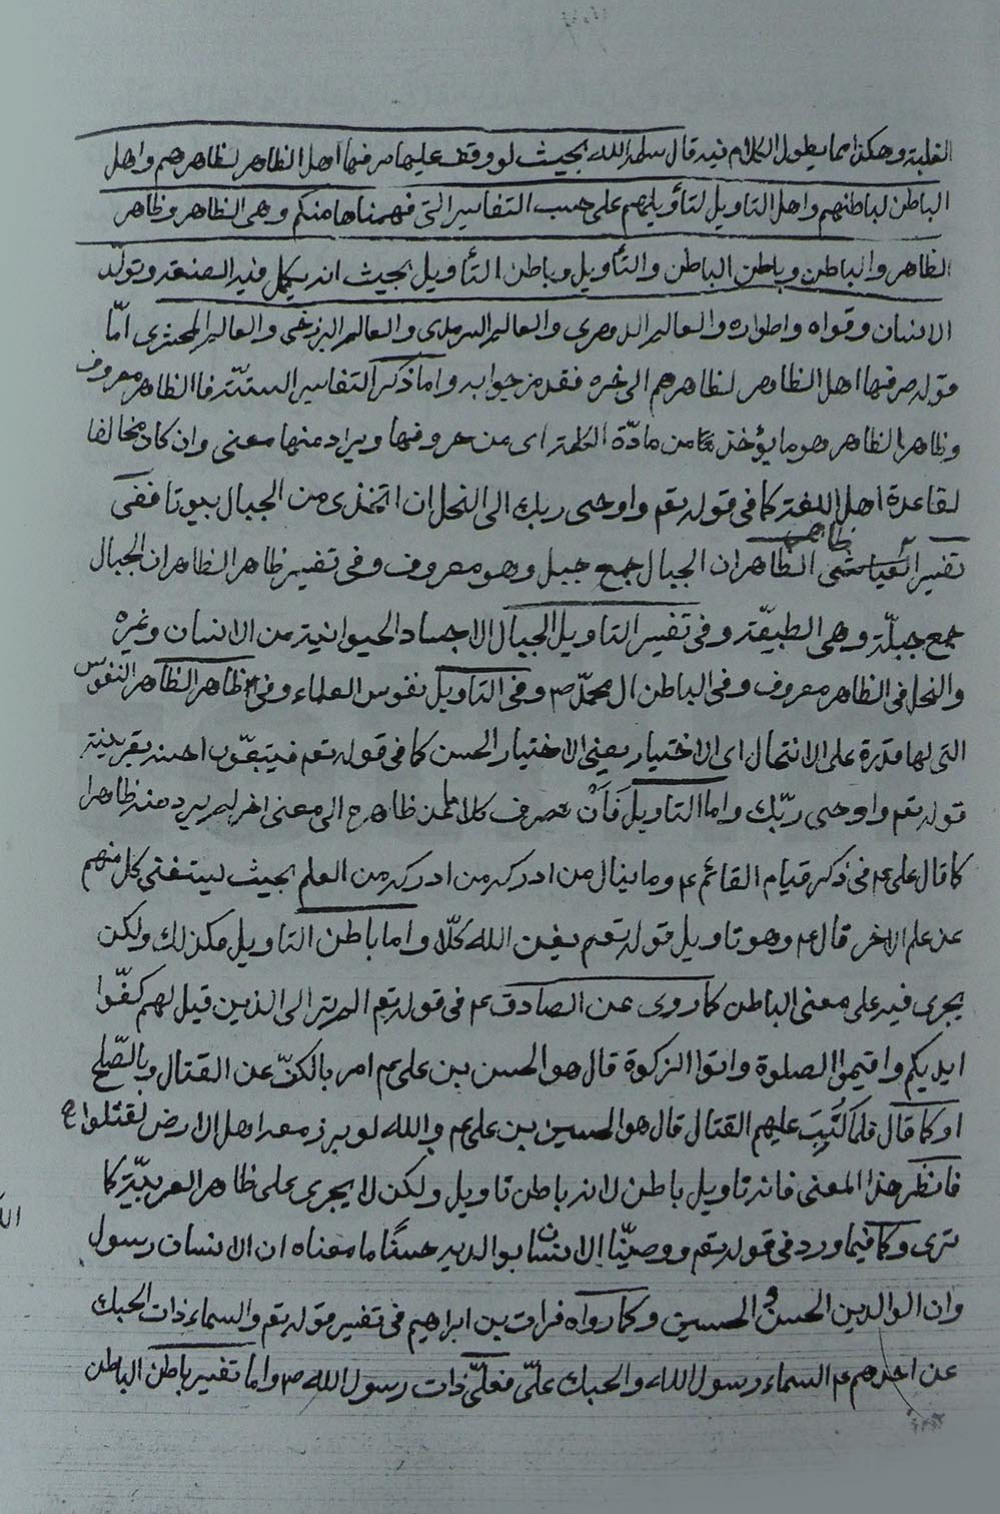 القلبية وهكذا مما يطول الكلام فيه قال سلمه الله بحيث لو وقف عليها صرفها اهل الظاهر لظاهرهم واهل
الباطن لباطنهم واهل التاويل لتأويلهم على حسب التفاسير التى فهمناها منكم وهى الظاهر وظاهر
الظاهر والباطن وباطن الباطن والتأويل وباطن التأويل بحيث انه يكمل فيه الصنعة وتولد
الانسان وقواه واطواره والعالم الدهرى والعالم السرمدى والعالم البرزخى والعالم المحشرى امّا
قوله صرفها اهل الظاهر لظاهرهم الى اخره فقد مر جوابه واما ذكر التفاسير الستّة فالظاهر معروف
وظاهر الظاهر وهو ما يؤخذ من مادّة الكلمة اى من حروفها ويراد منها معنى وان كان مخالفا
لقاعدة اهل اللغة كما فى قوله تعم واوحى ربك الى النحل ان اتخذى من الجبال بيوتا ففى
تفسير الظاهر ان الجبال جمع جبل وهو معروف وفى تفسير ظاهر الظاهر ان الجبال
جمع جبلّة وهى الطبيعّة وفى تفسير التاويل الجبال الاجساد الحيوانية من الانسان وغيره
والنحل فى الظاهر معروف وفى الباطن ال محمّد ص وفى التاويل نفوس العلماء وفى ظاهر الظاهر النفوس
التى لها قدرة على الانتحال اى الاختيار يعنى الاختيار الحسن كما فى قوله تعم فيتبعّون احسنه بقرينة
قوله تعم واوحى ربّك واما التاويل فَاَنْ تصرف كلاما عن ظاهره الى معنى اخر لم يرد منه ظاهرا
كما قال على ع فى ذكر قيام القائم ع وما ينال من ادركه من ادركه من العلم بحيث ليستغنى كل منهم
عن علم الاخر قال ع وهو تاويل قوله تعم يغن الله كلّا واما باطن التاويل فكذلك ولكن
يجرى فيه على معنى الباطن كما روى عن الصادق ع فى قوله تع الم تر الى الذين قيل لهم كفّوا
ايديكم واقيموا الصلوة واتوا الزكوة قال هو الحسن بن على ع امر بالكفّ عن القتال وبالصّلح
او كما قال فلما كُتِبَ عليهم القتال قال هو الحسين بن على ع والله لو برز معه اهل الارض لقتلوا ح
فانظر هذا المعنى فانه تاويل باطن لانه باطن تاويل ولكن لا يجرى على ظاهر العربيّة كما
ترى وكما فيما ورد فى قوله تعم ووصيّنا الانسان بوالديه حسنًا ما معناه ان الانسان رسول
وان الوالدين الحسن و الحسين وكما رواه فرات بن ابراهيم فى تفسير قوله تعم والسماء ذات الحبك
عن احدهم ع السماء رسول الله والحبك علىّ فعلىّ ذات رسول الله ص واما تفسير باطن الباطن